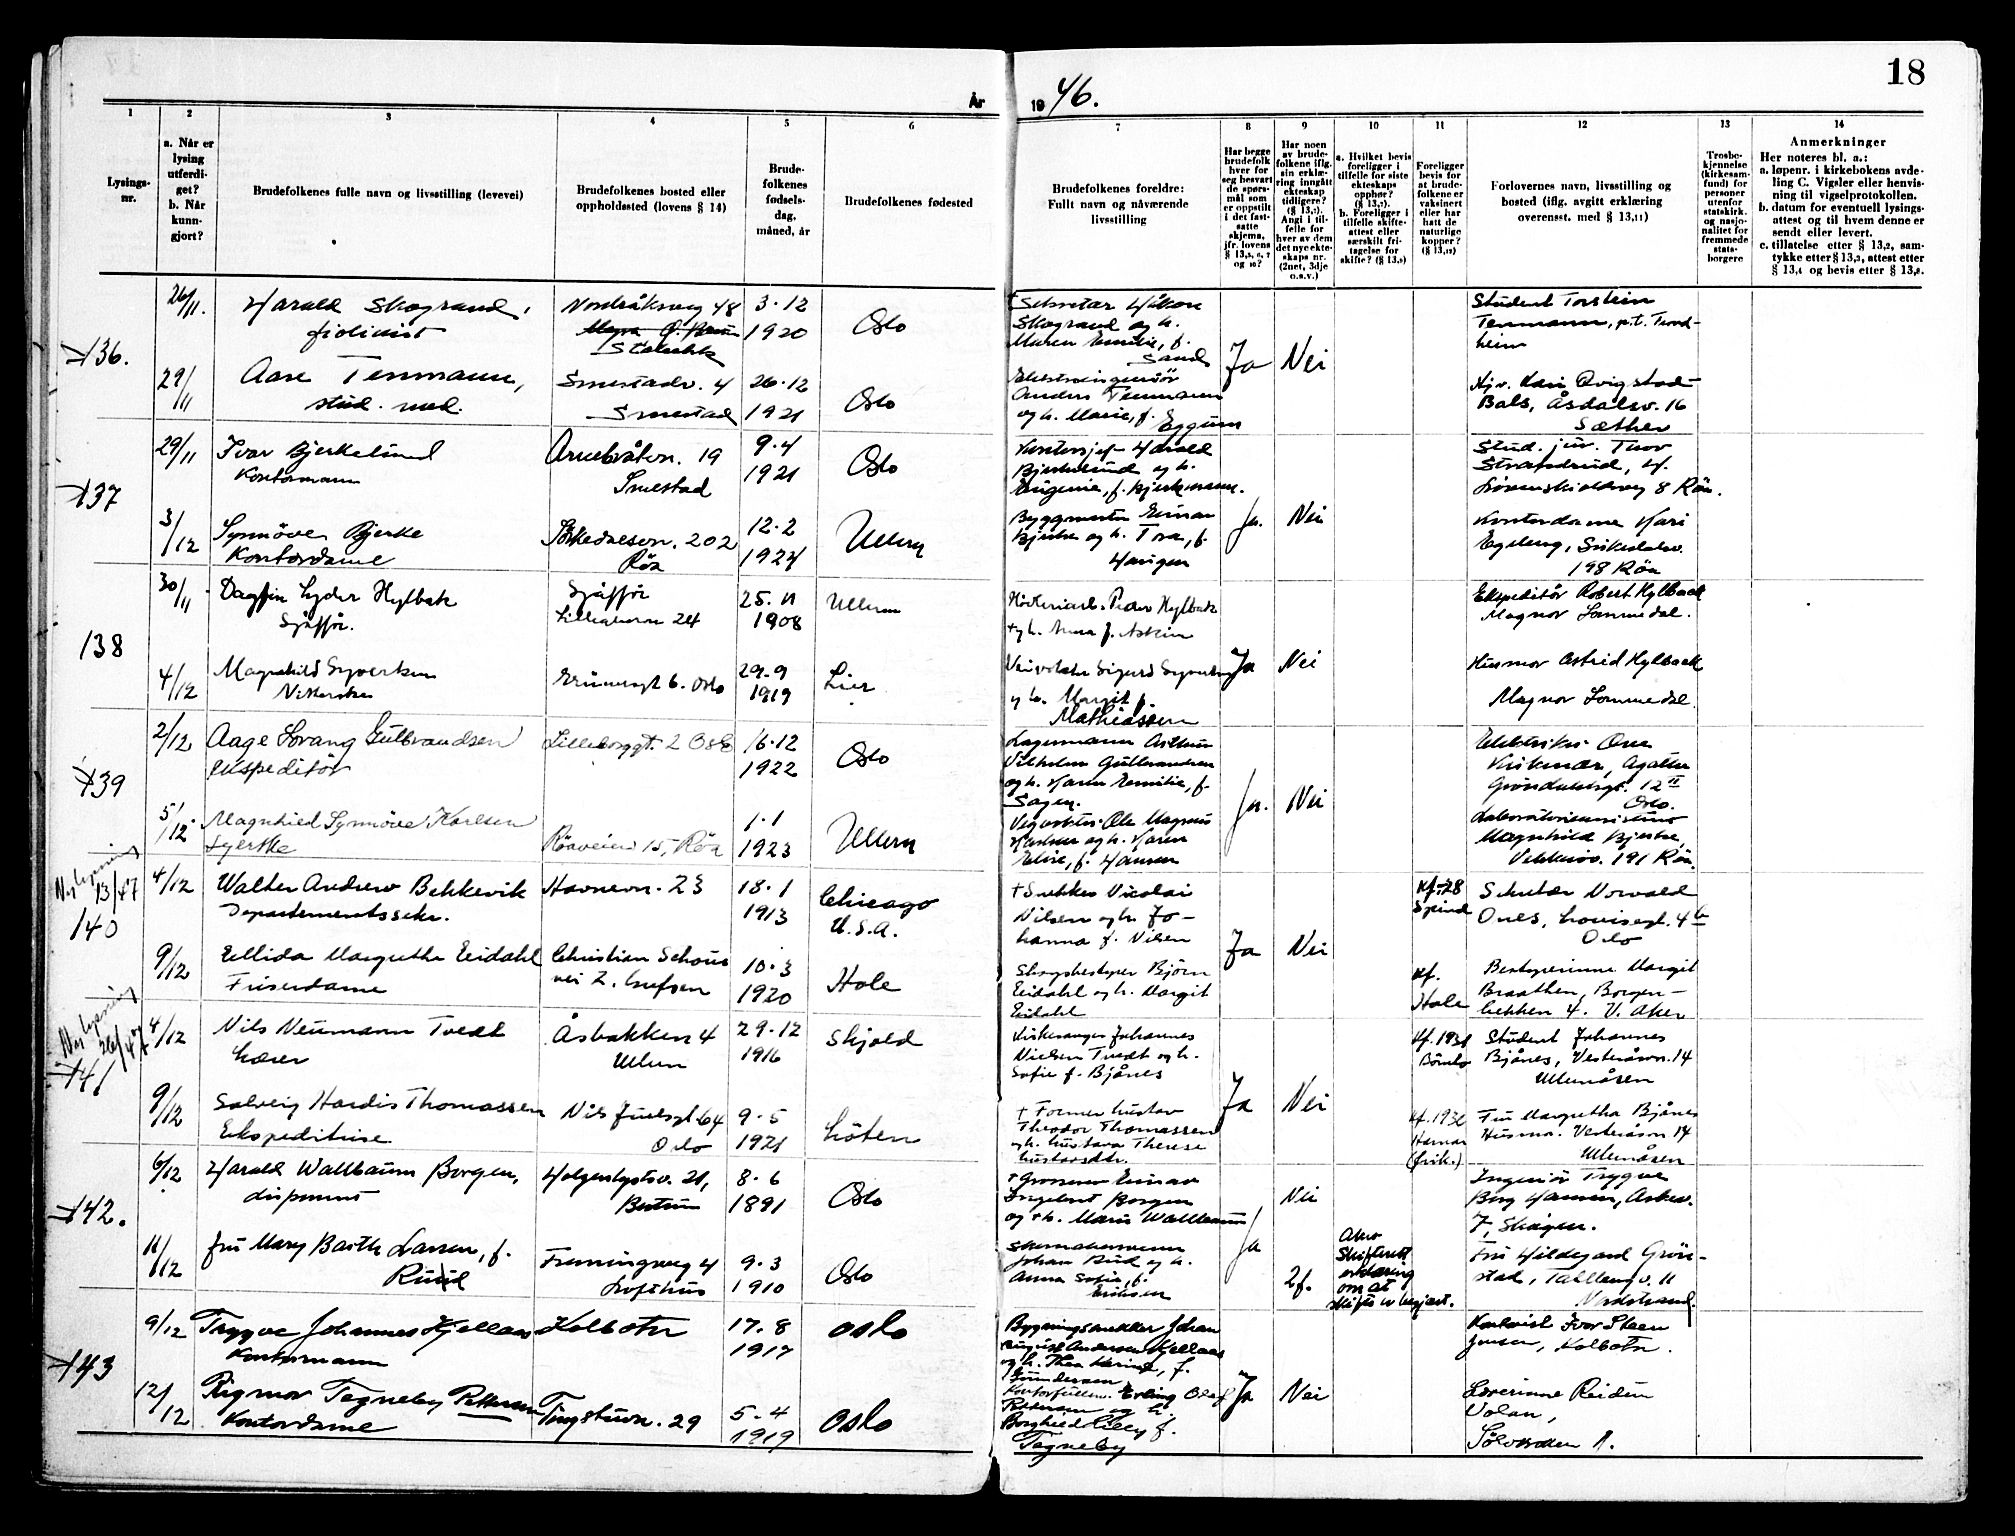 18
År
19 46.
1
Lysings-
nr.
2
a. Når er
lysing
utferdi-
get?
b. Når
kunn-
gjort?
3
Brudefolkenes fulle navn og livsstilling (levevei)
4
Brudefolkenes bosted eller
oppholdssted (lovens § 14)
5
Brude-
folkenes
fødsels-
dag,
måned, år
6
Brudefolkenes fødested
7
Brudefolkenes foreldre:
Fullt navn og nåværende
livsstilling
8
Har begge
brudefolk
hver for
seg besvart
de spørs-
mål som
er oppstilt
i det fast-
satte
skjema,
jfr. lovens
9
Har noen
av brude-
folkene iflg.
sin erklæ-
ring inngått
ekteskap
tidligere?
Angi i til-
felle for
hver av dem
det nye ekte-
skaps nr.
(2net, 3dje
o.s.v.)
10
a. Hvilket bevis
foreligger i
tilfelle for siste
ekteskaps
opphør?
b. Foreligger i
tilfelle skifte-
attest eller
særskilt fri-
tagelse for
skifte?
11
Foreligger
bevis for
at brude-
folkene er
vaksinert
eller har
hatt de
naturlige
kopper?
12
Forlovernes navn, livsstilling og
bosted (iflg. avgitt erklæring
overensst. med § 13,11)
13
Trosbe-
kjennelse
(kirkesam-
fund) for
personer
utenfor
statskirk.
og nasjo-
nalitet for
fremmede
stats-
borgere
14
Anmerkninger
Her noteres bl. a.:
a. løpenr. i kirkebokens avde-
ling C. Vigsler eller henvis-
ning til vigselprotokollen.
b. datum for eventuell lysings-
attest og til hvem denne er
sendt eller levert.
c. tillatelse etter § 13,2, sam-
tykke etter § 13,3, attest etter
§ 13,4 og bevis etter § 13,8.
136.
26/11.
Harald Skogrand,
fiolinist
Nordråksveg 48
3.12
1920
Oslo
Sekretær Håkon
Skogrand og h.
Maren Emilie, f.
Sand
Ja
Nei
Student Torstein
Tenmann, p.t. Trond-
heim
29/11
Aase Tenmann,
stud. med.
Smestadv. 4
Smestad
26.12
1921
Oslo
Elektroingeniør
Anders Tenmann
og h. Marie, f.
Eggum
Hjv. Kari Qvigstad-
Bals, Åsdalsv. 16
Sæther
137
29/11
Ivar Bjerkelund
Kontormann
Arnebråtvn. 19
Smestad
9.4
1921
Oslo
Kontorsjef Harald
Bjerkelund og h.
Eugenie, f. Bjerkmann.
Ja.
Nei
Stud. jur. Thor
Strandrud, H.
Løvenskioldsveg 8 Röa.
3/12
Synnöve Bjerke
Kontordame
Sörkedalsvn. 202
Röa
12.2
1924
Ullern
Byggmester Einar
Bjerke og h. Tora, f.
Haugen
Kontordame Kari
198 Röa
138
30/11
Dagfin Lyder Hylbak
Sjåfför.
Sjåfför
Lilleakervn 24
25.11
1908
Ullern
Peder Hylbak
og h. Anna f.
Ja
Nei
Ekspeditör Robert Hylbaek
Magnor Sommedal.
4/12
Magnhild Syversen
29.9
1919
Lier
Sigurd Syversen
og h. Margit f.
Mathiassen
Husmor Astrid Hylbaek
Magnor Sommedal
139
2/12
Aage Sorang Gulbrandsen
Ekspeditör
Lilleborggt. 2 Oslo
16.12
1922
Oslo
Lagermann Arthur
Vilhelm Gulbrandsen
og h. Karen Emilie, f.
Sagen.
Ja.
Nei
Elektriker Ove
Kirkenær, Agathe
Gröndahlsgt. 12 II
Oslo.
5/12
Magnhild Synnöve Karlsen
Syerske
Röaveien 15, Röa
1.1
1923
Ullern
Vegvokter Ole Magnus
Karlsen og h. Karen
Elise, f. Hansen
Magnhild Bjerke,
Vekkerøv. 191 Röa.
Ny lysning
13/47
140
4/12
Walter Andrew Bekkevik
Departementssekr.
Havnevn. 23
18.1
1913
Chicago
U.S.A.
Nicolai
Nilsen og h. Jo-
hanna f. Nilsen
Ja
Nei
Kf. 28
Spind
Sekretær Norvald
Ones, Lovisegt. 4 b
Oslo
9/12
Ellida Margrethe Eidahl
Friserdame
Christian Schous
vei 2. Grefsen
10.3
1920
Hole
Skogbestyrer Björn
Eidahl og h. Margit
Eidahl
Kf.
Hole
Bestyrerinne Margit
Braathen, Borgen-
bekken 4. V. Aker
Ny lysning
26/47
141
4/12
Nils Neumann Tvedt
Lærer
Åsbakken 4
Ullern
29.12
1916
Skjold
Kirkesanger Johannes
Nielsen Tvedt og h.
Sofie f. Bjånes
Ja
Nei
Kf. 1931
Bömlo
Student Johannes
Bjånes, Vesteråsvn. 14
Ullernåsen
9/12
Solveig Hardis Thomassen
Ekspeditrise
Nils Juelsgt 64
Oslo
9.5
1921
Löten
+ Former Gustav
Theodor Thomassen
og h. Gustava Therese
Gustavsdtr.
Kf. 1936
Hamar
(frik.)
Fru Margretha Bjånes
Husmor. Vesteråsvn 14
Ullernåsen
142.
6/12
Harald Wallbaum Borgen,
disponent
Holgerslystv. 21,
Bestum
8.6
1891
Oslo
+ Grosserer Einar
Ingebret Borgen
og + h. Marie Wallbaum
Ja
Nei
Ingeniör Trygve
Berg Hansen, Askev.
7, Skøyen.
11/12
Fru Mary Barth Larsen, f.
Ruud
Fremingsveg 4
Lofthus
9.3
1910
Oslo
Skomakersvenn
Johan Ruud og h.
Anna Sofie, f.
Eriksen
2 f.
Aker
Skifterett
erklæring
om at
skifte er begjært.
Fru Hildegard Grön-
stad, Tallbergv. 11
Nordstrand.
143
9/12
Trygve Johannes Kjellaas
Kontormann
Kolbotn
17.8
1917
Oslo
Bygningssnekker Johan
August Andersen Kjellaas
og h. Thea Karine, f.
Gundersen
Ja
Nei
Kontorist Ivar Steen
Jensen, Kolbotn.
12/12
Rigmor Tegneby Pettersen
Kontordame
Tingstuvn. 29
5.4
1919
Oslo
Kontorfullm. Erling Olaf
Pettersen og h.
Borghild Cilly f.
Tegneby
Lærerinne Reidun
Volan,